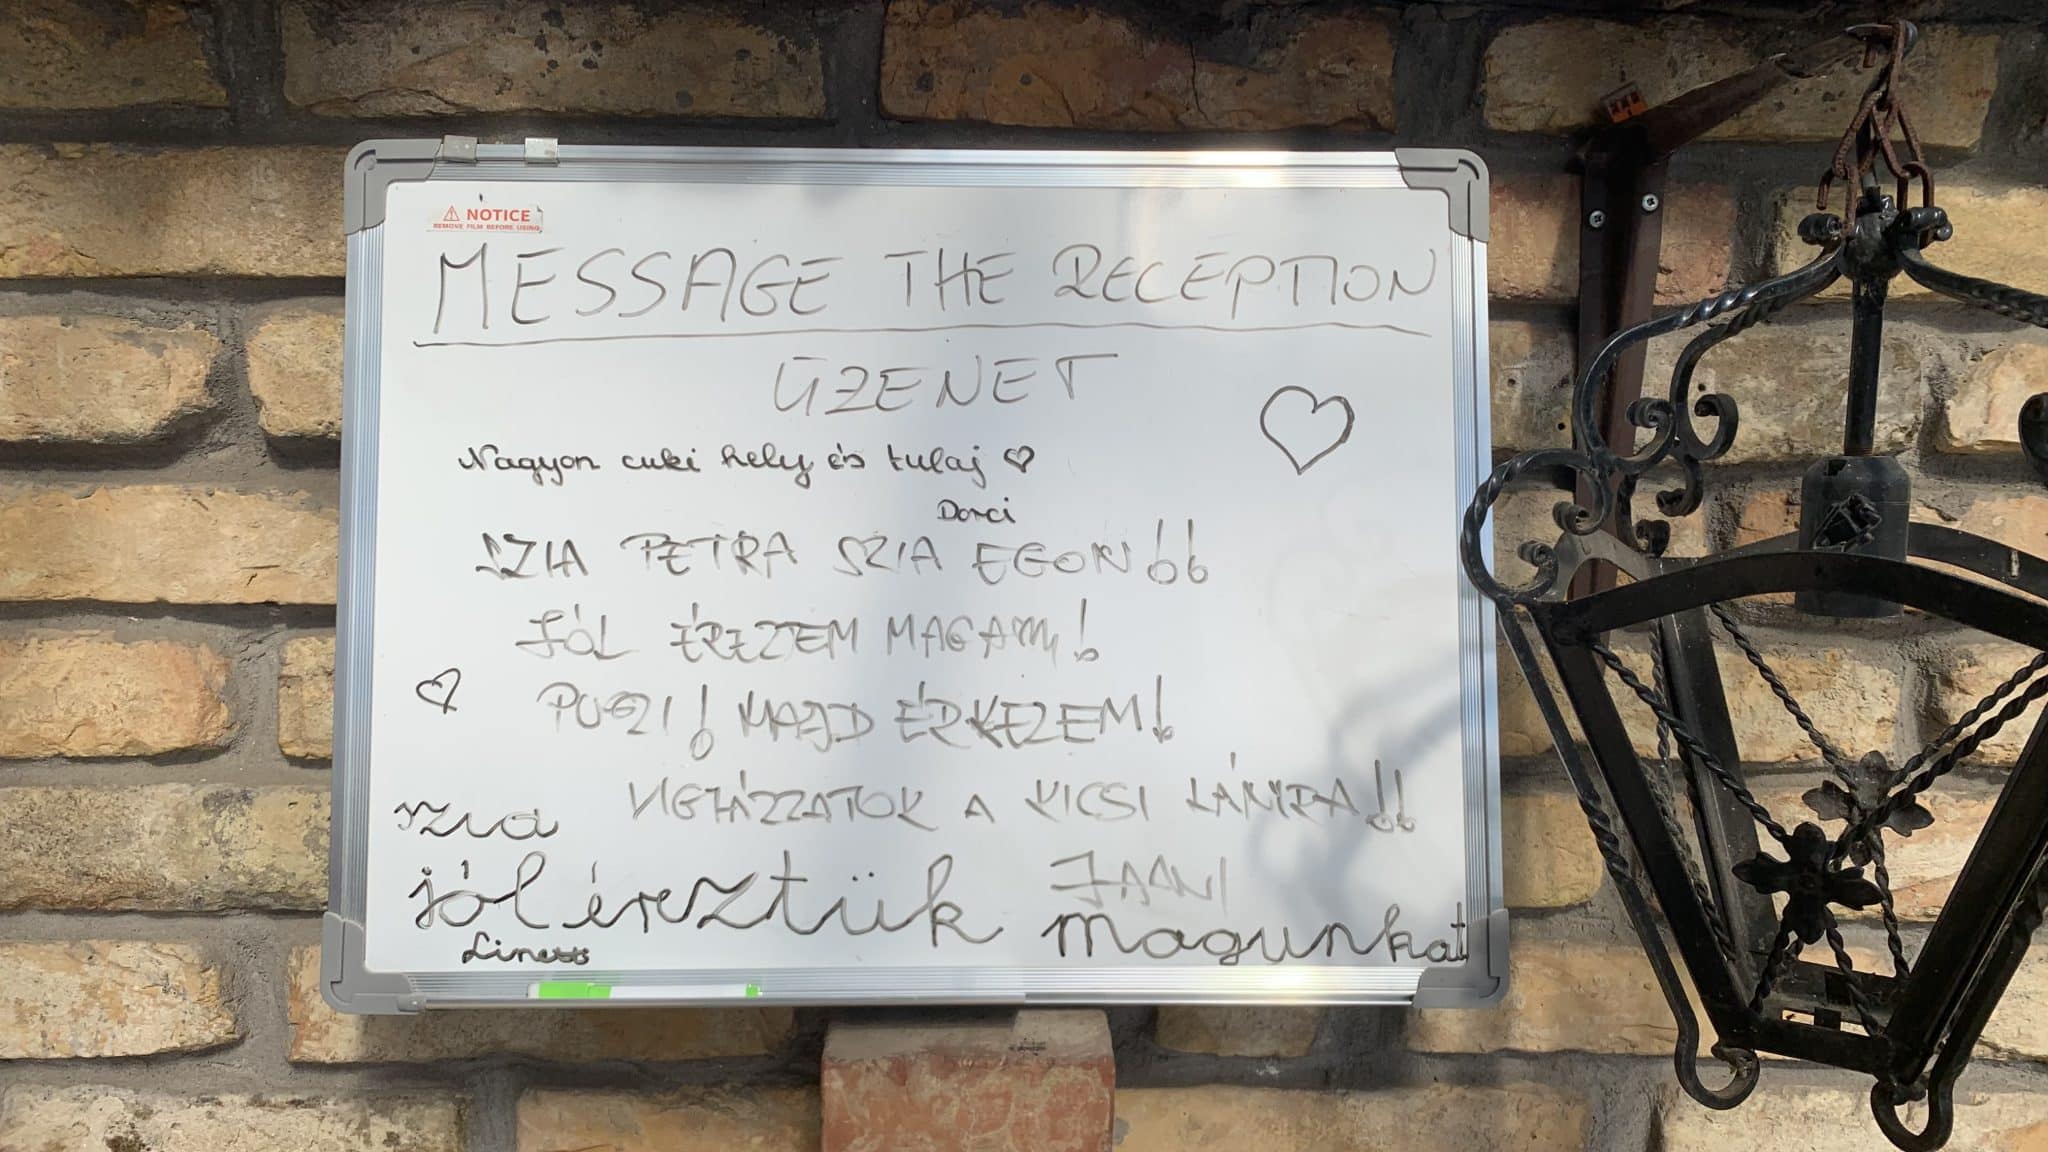 NOTICE
REMOVE FILM BEFORE USING
MESSAGE THE RECEPTION
ÜZENET
Nagyon cuki hely és tulaj
Dorci
SZIA PETRA SZIA EGON!!
JÓL ÉREZTEM MAGAM!
PUSZI! MAJD ÉRKEZEM!
VIGYÁZZATOK A KICSI LÁNYRA!!
JAANI
szia
jól éreztük magunkat
Linett